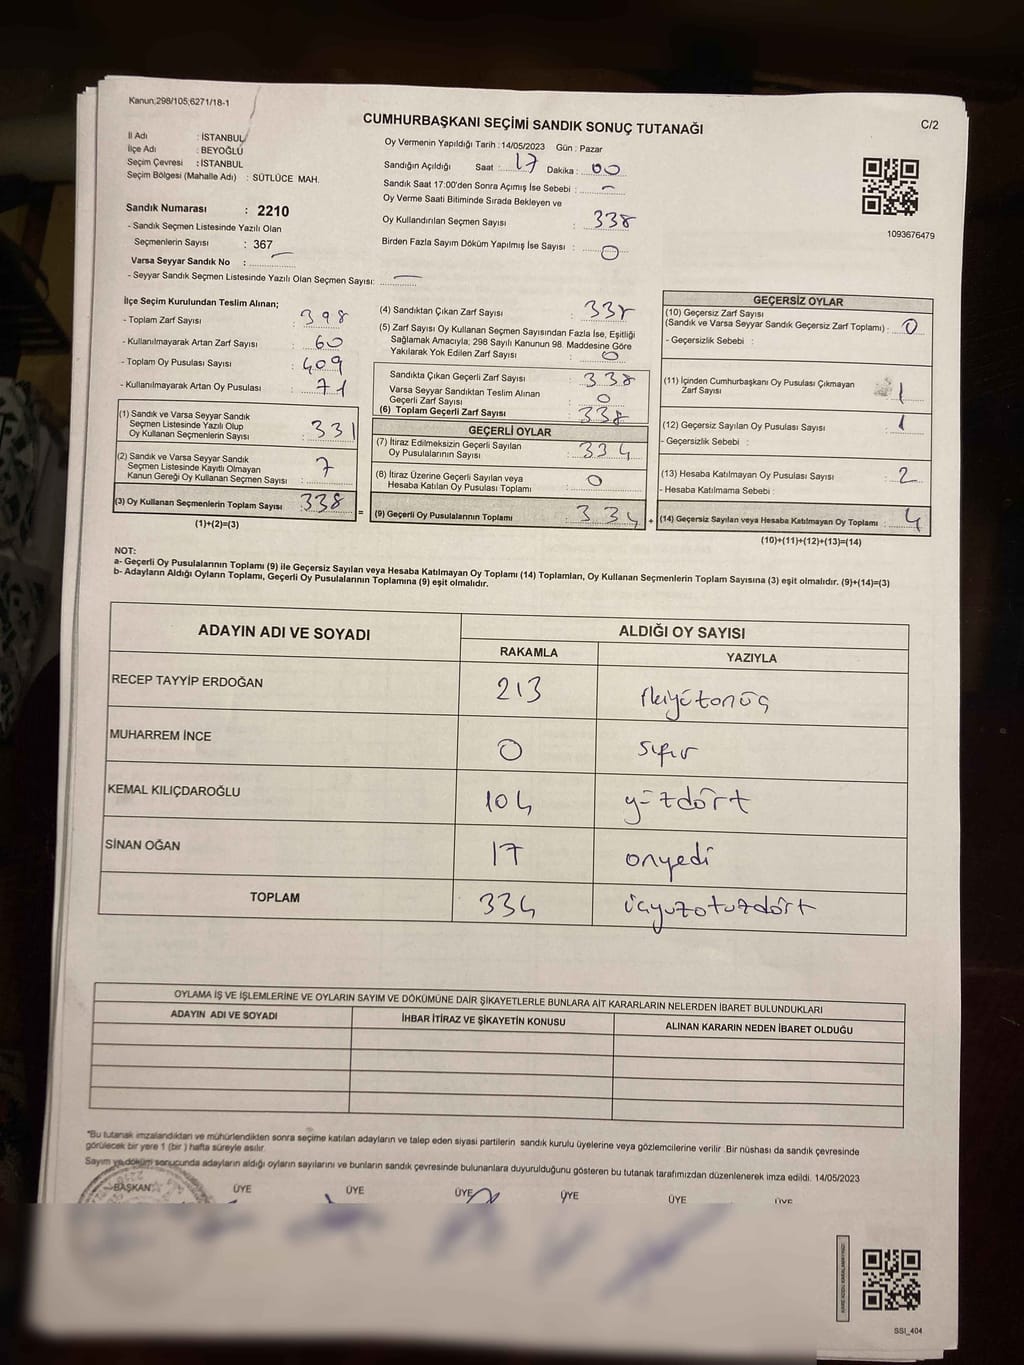 Kanun;298/105;6271/18-1
C/2
CUMHURBAŞKANI SEÇİMİ SANDIK SONUÇ TUTANAĞI
İl Adı : İSTANBUL
İlçe Adı : BEYOĞLU
Seçim Çevresi : İSTANBUL
Seçim Bölgesi (Mahalle Adı) : SÜTLÜCE MAH.
Sandık Numarası : 2210
- Sandık Seçmen Listesinde Yazılı Olan
Seçmenlerin Sayısı : 367
Varsa Seyyar Sandık No :
- Seyyar Sandık Seçmen Listesinde Yazılı Olan Seçmen Sayısı:
Oy Vermenin Yapıldığı Tarih : 14/05/2023 Gün : Pazar
Sandığın Açıldığı Saat : 17 Dakika : 00
Sandık Saat 17:00'den Sonra Açımış İse Sebebi : -
Oy Verme Saati Bitiminde Sırada Bekleyen ve
Oy Kullandırılan Seçmen Sayısı : 338
Birden Fazla Sayım Döküm Yapılmış İse Sayısı : 0
1093676479
İlçe Seçim Kurulundan Teslim Alınan;
- Toplam Zarf Sayısı : 398
- Kullanılmayarak Artan Zarf Sayısı : 60
- Toplam Oy Pusulası Sayısı : 409
- Kullanılmayarak Artan Oy Pusulası : 71
(1) Sandık ve Varsa Seyyar Sandık
Seçmen Listesinde Yazılı Olup
Oy Kullanan Seçmenlerin Sayısı : 331
(2) Sandık ve Varsa Seyyar Sandık
Seçmen Listesinde Kayıtlı Olmayan
Kanun Gereği Oy Kullanan Seçmen Sayısı : 7
(3) Oy Kullanan Seçmenlerin Toplam Sayısı : 338
(1)+(2)=(3)
=
(4) Sandıktan Çıkan Zarf Sayısı : 338
(5) Zarf Sayısı Oy Kullanan Seçmen Sayısından Fazla İse, Eşitliği
Sağlamak Amacıyla; 298 Sayılı Kanunun 98. Maddesine Göre
Yakılarak Yok Edilen Zarf Sayısı : 0
Sandıkta Çıkan Geçerli Zarf Sayısı : 338
Varsa Seyyar Sandıktan Teslim Alınan
Geçerli Zarf Sayısı : 0
(6) Toplam Geçerli Zarf Sayısı : 338
GEÇERLİ OYLAR
(7) İtiraz Edilmeksizin Geçerli Sayılan
Oy Pusulalarının Sayısı : 334
(8) İtiraz Üzerine Geçerli Sayılan veya
Hesaba Katılan Oy Pusulası Toplamı : 0
(9) Geçerli Oy Pusulalarının Toplamı : 334
+
GEÇERSİZ OYLAR
(10) Geçersiz Zarf Sayısı
(Sandık ve Varsa Seyyar Sandık Geçersiz Zarf Toplamı) : 0
- Geçersizlik Sebebi :
(11) İçinden Cumhurbaşkanı Oy Pusulası Çıkmayan
Zarf Sayısı : 1
(12) Geçersiz Sayılan Oy Pusulası Sayısı : 1
- Geçersizlik Sebebi :
(13) Hesaba Katılmayan Oy Pusulası Sayısı : 2
- Hesaba Katılmama Sebebi :
(14) Geçersiz Sayılan veya Hesaba Katılmayan Oy Toplamı : 4
(10)+(11)+(12)+(13)=(14)
NOT:
a- Geçerli Oy Pusulalarının Toplamı (9) ile Geçersiz Sayılan veya Hesaba Katılmayan Oy Toplamı (14) Toplamları, Oy Kullanan Seçmenlerin Toplam Sayısına (3) eşit olmalıdır. (9)+(14)=(3)
b- Adayların Aldığı Oyların Toplamı, Geçerli Oy Pusulalarının Toplamına (9) eşit olmalıdır.
ADAYIN ADI VE SOYADI ALDIĞI OY SAYISI
RAKAMLA YAZIYLA
RECEP TAYYİP ERDOĞAN 213 ikiyüzonüç
MUHARREM İNCE 0 sıfır
KEMAL KILIÇDAROĞLU 104 yüzdört
SİNAN OĞAN 17 onyedi
TOPLAM 334 üçyüzotuzdört
OYLAMA İŞ VE İŞLEMLERİNE VE OYLARIN SAYIM VE DÖKÜMÜNE DAİR ŞİKAYETLERLE BUNLARA AİT KARARLARIN NELERDEN İBARET BULUNDUKLARI
ADAYIN ADI VE SOYADI İHBAR İTİRAZ VE ŞİKAYETİN KONUSU ALINAN KARARIN NEDEN İBARET OLDUĞU
*Bu tutanak imzalandıktan ve mühürlendikten sonra seçime katılan adayların ve talep eden siyasi partilerin sandık kurulu üyelerine veya gözlemcilerine verilir. Bir nüshası da sandık çevresinde
görülecek bir yere 1 (bir) hafta süreyle asılır.
Sayım ve döküm sonucunda adayların aldığı oyların sayılarını ve bunların sandık çevresinde bulunanlara duyurulduğunu gösteren bu tutanak tarafımızdan düzenlenerek imza edildi. 14/05/2023
BAŞKAN ÜYE ÜYE ÜYE ÜYE ÜYE ÜYE
SSI_404